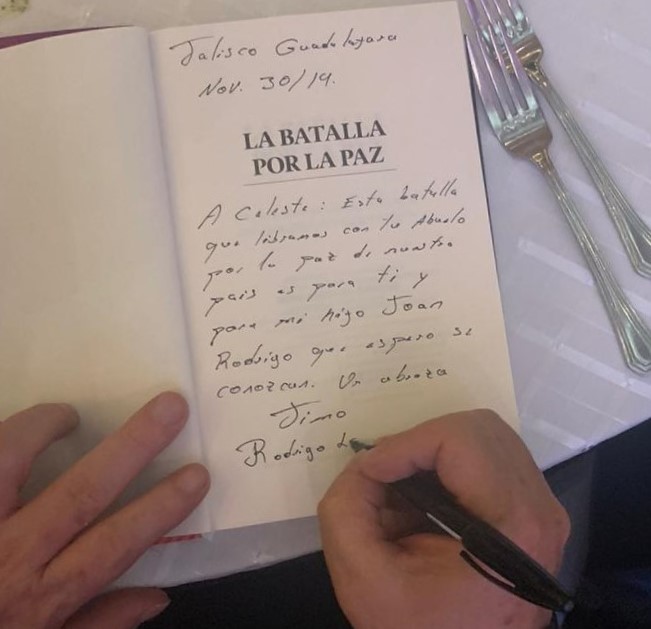 Jalisco Guadalajara
Nov. 30/19.
LA BATALLA
POR LA PAZ
A Celeste: Esta batalla
que libramos con tu Abuelo
por la paz de nuestro
pais es para ti y
para mi hijo Joan
Rodrigo que espero se
conozcan. Un abrazo
Timo
Rodrigo